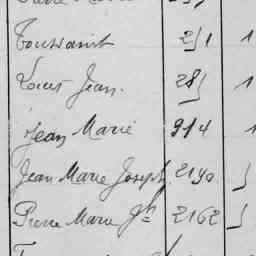 Toussaint 251 1
Louis Jean. 285 1
Jean Marie 914 1
Jean Marie Joseph 2140
Pierre Marie Jh 2162